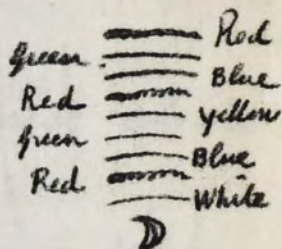 Red
Green
Blue
Red
Yellow
Green
Blue
Red
White
D